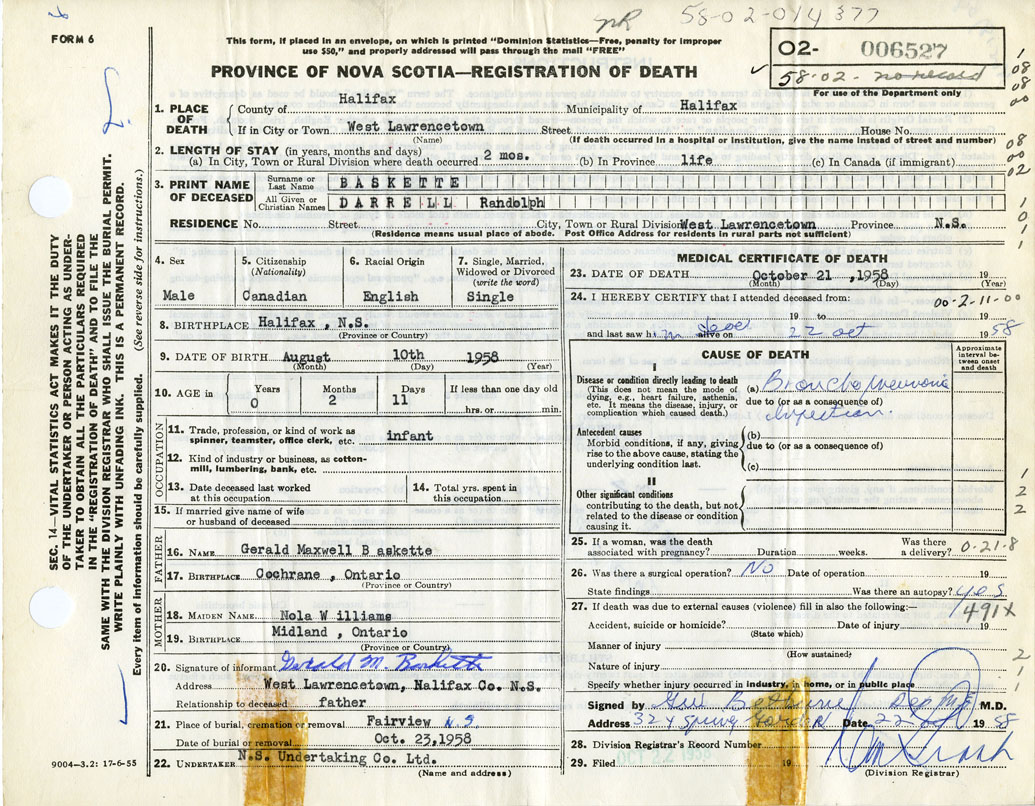 nR 58-02-014377
FORM 6
This form, if placed in an envelope, on which is printed "Dominion Statistics—Free, penalty for improper
use $50," and properly addressed will pass through the mail "FREE"
PROVINCE OF NOVA SCOTIA—REGISTRATION OF DEATH
02- 006527
58-02- no record
For use of the Department only
SEC. 14—VITAL STATISTICS ACT MAKES IT THE DUTY
OF THE UNDERTAKER OR PERSON ACTING AS UNDER-
TAKER TO OBTAIN ALL THE PARTICULARS REQUIRED
IN THE "REGISTRATION OF DEATH" AND TO FILE THE
SAME WITH THE DIVISION REGISTRAR WHO SHALL ISSUE THE BURIAL PERMIT.
WRITE PLAINLY WITH UNFADING INK. THIS IS A PERMANENT RECORD.
Every item of information should be carefully supplied. (See reverse side for instructions.)
1. PLACE OF DEATH
County of Halifax Municipality of Halifax
If in City or Town West Lawrencetown Street House No.
(Name) (If death occurred in a hospital or institution, give the name instead of street and number)
2. LENGTH OF STAY (in years, months and days)
(a) In City, Town or Rural Division where death occurred 2 mos. (b) In Province life (c) In Canada (if immigrant)
3. PRINT NAME OF DECEASED
Surname or Last Name BASKETTE
All Given or Christian Names DARRELL Randolph
RESIDENCE No. Street City, Town or Rural Division West Lawrencetown Province N.S.
(Residence means usual place of abode. Post Office Address for residents in rural parts not sufficient)
4. Sex Male
5. Citizenship (Nationality) Canadian
6. Racial Origin English
7. Single, Married, Widowed or Divorced (write the word) Single
8. BIRTHPLACE Halifax , N.S.
(Province or Country)
9. DATE OF BIRTH August 10th 1958
(Month) (Day) (Year)
10. AGE in Years 0 Months 2 Days 11 If less than one day old
hrs. or min.
OCCUPATION
11. Trade, profession, or kind of work as
spinner, teamster, office clerk, etc. infant
12. Kind of industry or business, as cotton-
mill, lumbering, bank, etc.
13. Date deceased last worked at this occupation
14. Total yrs. spent in this occupation
15. If married give name of wife
or husband of deceased
FATHER
16. NAME Gerald Maxwell B askette
17. BIRTHPLACE Cochrane , Ontario
(Province or Country)
MOTHER
18. MAIDEN NAME Nola W illiams
19. BIRTHPLACE Midland , Ontario
(Province or Country)
20. Signature of informant Gerald M. Baskette
Address West Lawrencetown, Halifax Co. N.S.
Relationship to deceased father
21. Place of burial, cremation or removal Fairview N.S.
Date of burial or removal Oct. 23,1958
22. UNDERTAKER N.S. Undertaking Co. Ltd.
(Name and address)
9004-3.2: 17-6-55
MEDICAL CERTIFICATE OF DEATH
23. DATE OF DEATH October 21 ,1958 19
(Month) (Day) (Year)
24. I HEREBY CERTIFY that I attended deceased from: 00-2-11-00
19 to 19
and last saw him dead alive on 22 Oct 1958
CAUSE OF DEATH
Approximate interval between onset and death
I
Disease or condition directly leading to death
(This does not mean the mode of
dying, e.g., heart failure, asthenia,
etc. It means the disease, injury, or
complication which caused death.)
(a) Bronchopneumonia
due to (or as a consequence of)
Infection.
Antecedent causes
Morbid conditions, if any, giving
rise to the above cause, stating the
underlying condition last.
(b)
due to (or as a consequence of)
(c)
II
Other significant conditions
contributing to the death, but not
related to the disease or condition
causing it.
25. If a woman, was the death
associated with pregnancy? Duration weeks. Was there a delivery? 0-21-8
26. Was there a surgical operation? No Date of operation 19
State findings Was there an autopsy? yes
27. If death was due to external causes (violence) fill in also the following:— 491X
Accident, suicide or homicide? Date of injury 19
(State which)
Manner of injury
(How sustained)
Nature of injury
Specify whether injury occurred in industry, in home, or in public place
Signed by M.D.
Address 324 Spring Garden Rd Date 22 Oct 1958
28. Division Registrar's Record Number
29. Filed OCT 22 1958 19
(Division Registrar)
1
08
08
00
08
00
02
1
0
1
1
1
2
2
2
1